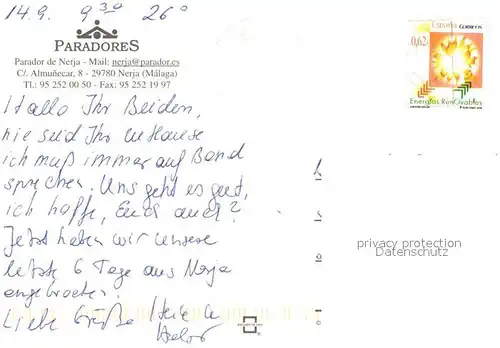 14.9. 9³⁰ 26°
PARADORES
Parador de Nerja - Mail: nerja@parador.es
C/. Almuñecar, 8 - 29780 Nerja (Málaga)
Tl.: 95 252 00 50 - Fax: 95 252 19 97
Hallo Ihr Beiden,
nie seid Ihr zu Hause
ich muß immer auf Band
sprechen. Uns geht es gut,
ich hoffe, Euch auch?
Jetzt haben wir unsere
letzte 6 Tage aus Nerja
angebrochen.
Liebe Grüße
España CORREOS
0,62
Energías Renovables
privacy protection
Datenschutz